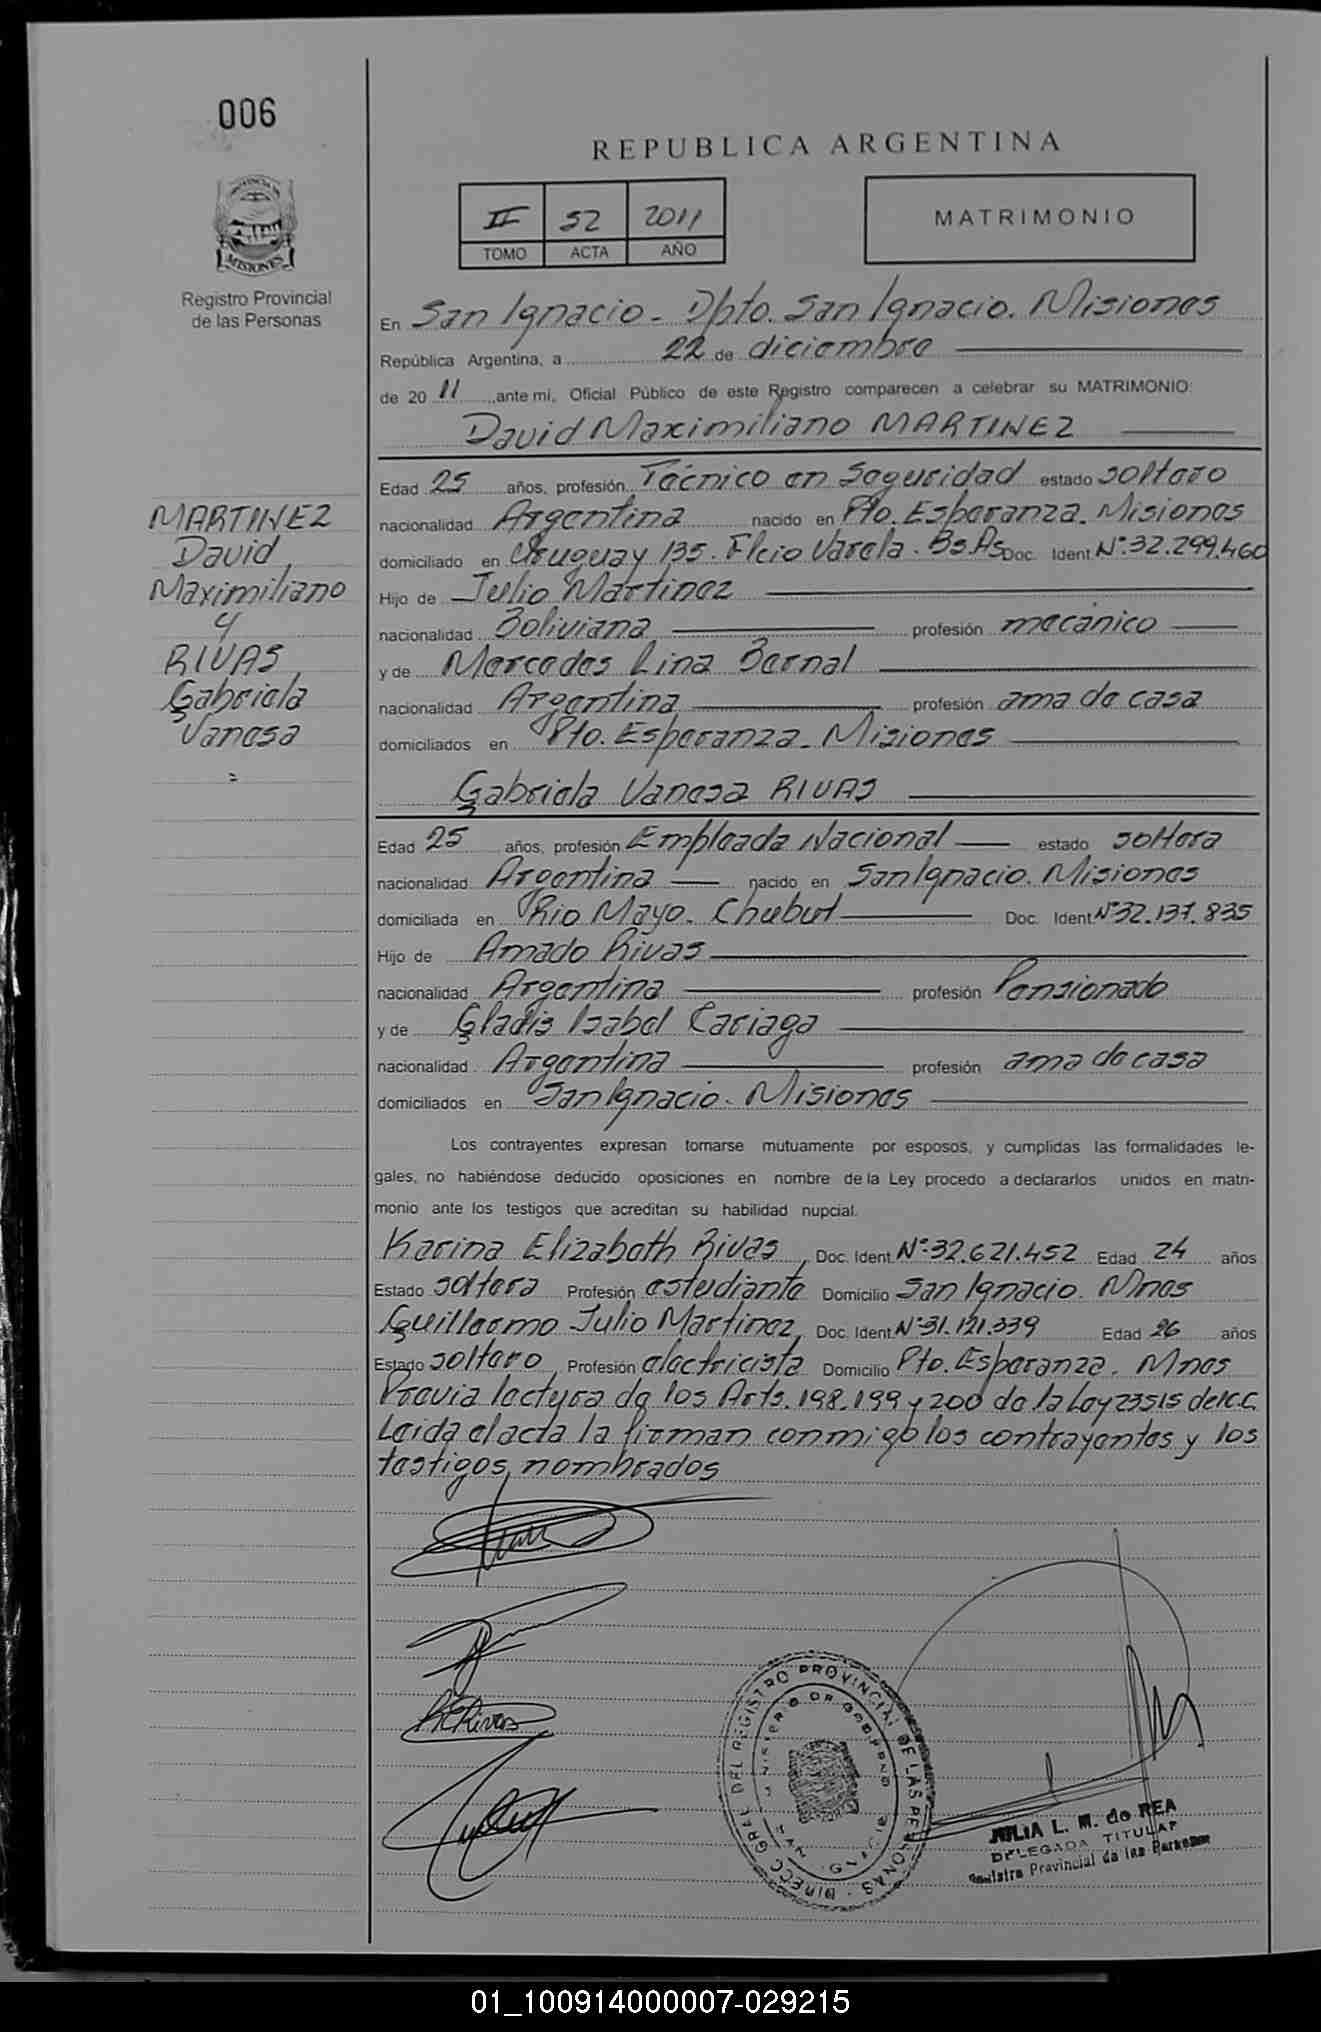 006
REPUBLICA ARGENTINA
II 52 2011
TOMO ACTA AÑO
MATRIMONIO
PROVINCIA DE
MISIONES
Registro Provincial
de las Personas
En San Ignacio - Dpto. San Ignacio. Misiones
República Argentina, a 22 de diciembre
de 2011 ante mi, Oficial Público de este Registro comparecen a celebrar su MATRIMONIO:
David Maximiliano MARTINEZ
Edad 25 años, profesión Técnico en Seguridad estado soltero
nacionalidad Argentina nacido en Pto. Esperanza. Misiones
domiciliado en Uruguay 135. Flcio Varela. Bs.As Doc. Ident Nº.32.299.460
Hijo de Julio Martinez
nacionalidad Boliviana profesión mecánico
y de Mercedes Lina Bernal
nacionalidad Argentina profesión ama de casa
domiciliados en Pto. Esperanza. Misiones
MARTINEZ
David
Maximiliano
y
RIVAS
Gabriela
Vanesa
=
Gabriela Vanesa RIVAS
Edad 25 años, profesión Empleada Nacional estado soltera
nacionalidad Argentina nacido en San Ignacio. Misiones
domiciliada en Rio Mayo. Chubut Doc. Ident Nº32.137.835
Hijo de Amado Rivas
nacionalidad Argentina profesión Pensionado
y de Gladis Isabel Cariaga
nacionalidad Argentina profesión ama de casa
domiciliados en San Ignacio. Misiones
Los contrayentes expresan tomarse mutuamente por esposos, y cumplidas las formalidades le-
gales, no habiéndose deducido oposiciones en nombre de la Ley procedo a declararlos unidos en matri-
monio ante los testigos que acreditan su habilidad nupcial.
Karina Elizabeth Rivas, Doc. Ident. Nº.32.621.452 Edad 24 años
Estado soltera Profesión estudiante Domicilio San Ignacio. Mnes
Guillermo Julio Martinez, Doc. Ident. Nº31.121.339 Edad 26 años
Estado soltero Profesión electricista Domicilio Pto. Esperanza. Mnes
Previa lectura de los Arts. 198.199 y 200 de la Ley 23515 del C.C.
Leida el acta la firman conmigo los contrayentes y los
testigos nombrados
DIRECC GRAL DEL REGISTRO PROVINCIAL DE LAS PERSONAS
MINISTERIO DE GOBIERNO
SAN IGNACIO
JULIA L. M. de REA
DELEGADA TITULAR
Registro Provincial de las Personas
01_100914000007-029215